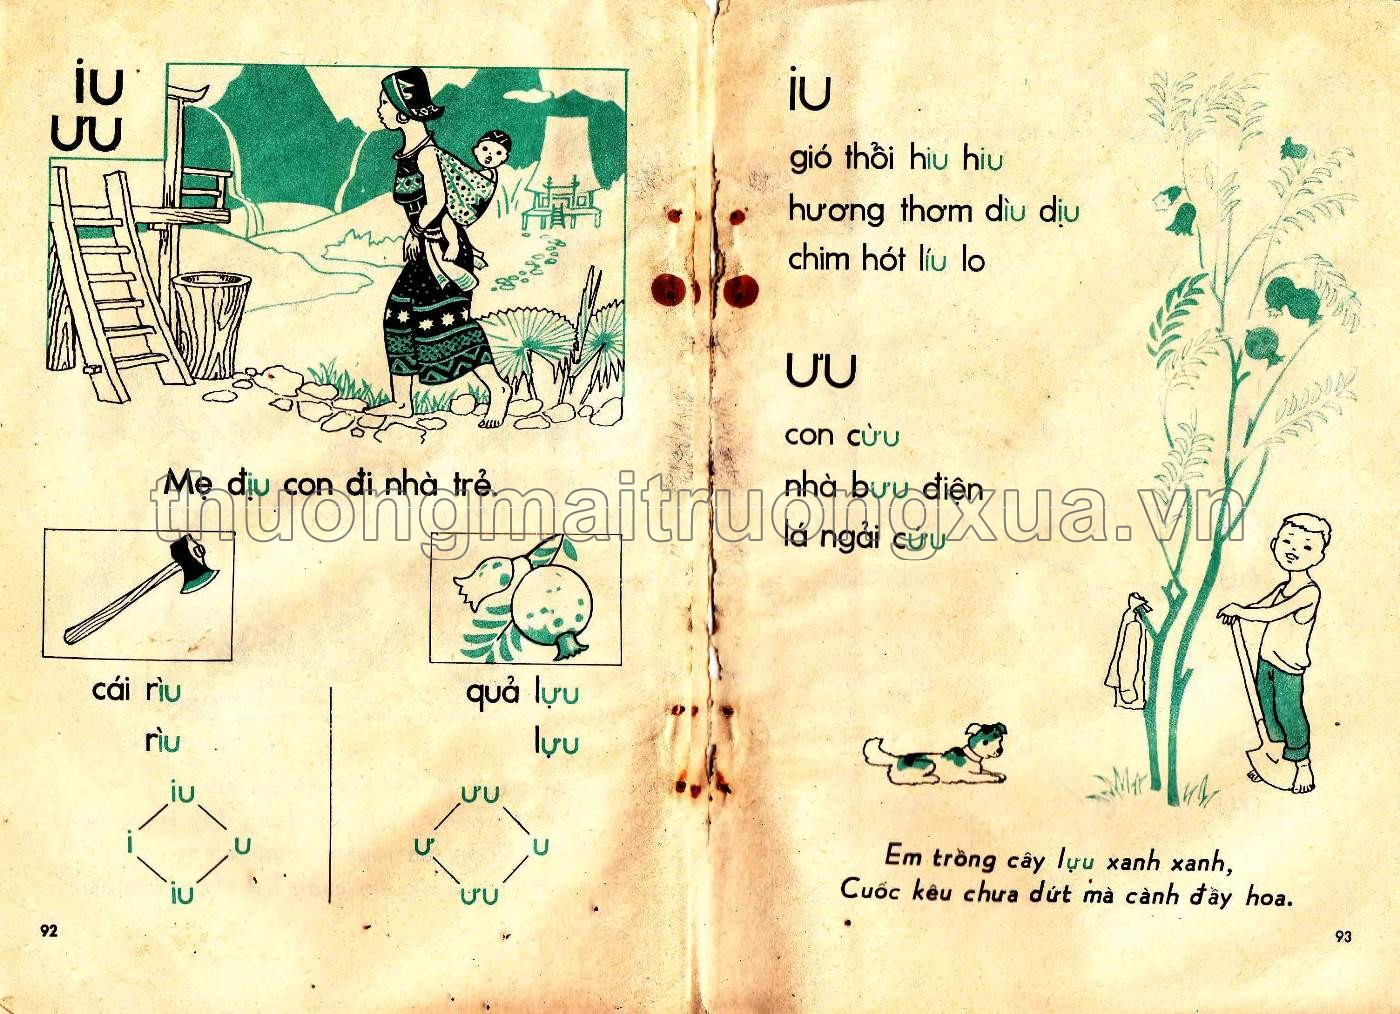 iu
ưu
Mẹ địu con đi nhà trẻ.
cái rìu
rìu
iu
i u
iu
quả lựu
lựu
ưu
ư u
ưu
92
iu
gió thổi hiu hiu
hương thơm dìu dịu
chim hót líu lo
ưu
con cừu
nhà bưu điện
lá ngải cứu
Em trồng cây lựu xanh xanh,
Cuốc kêu chưa dứt mà cành đầy hoa.
93
thuongmaitruongxua.vn